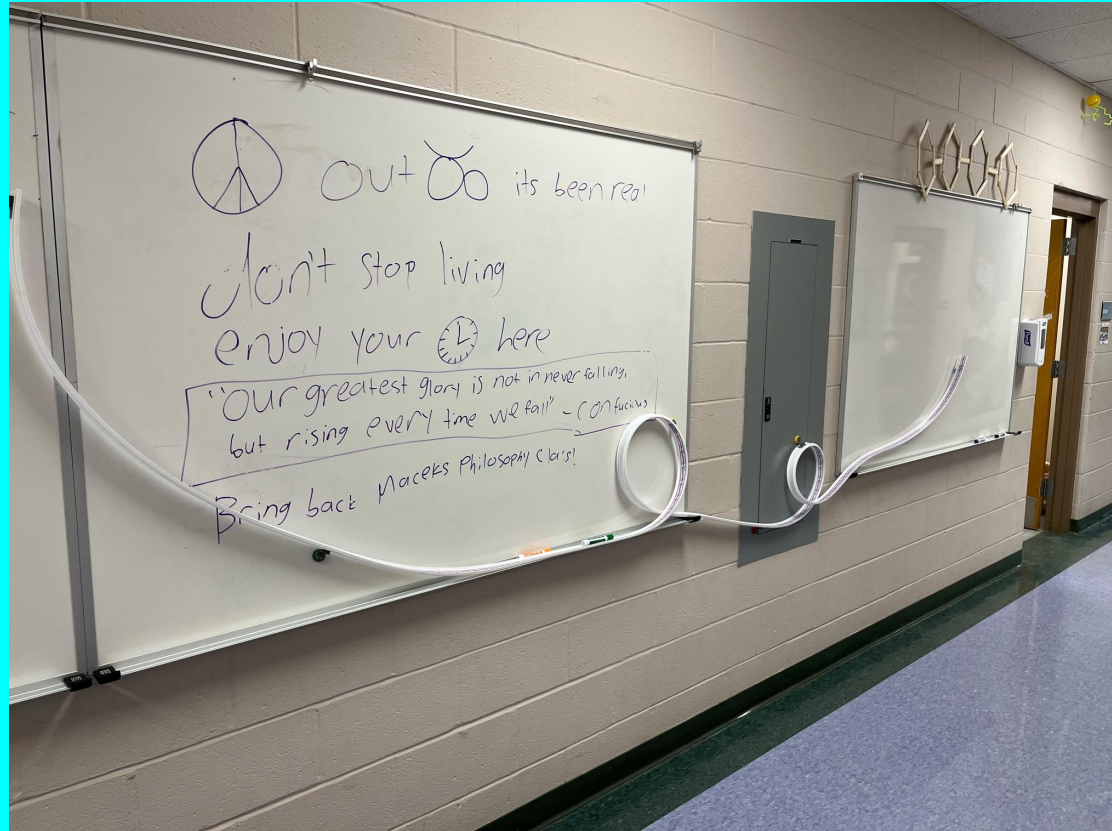 out its been real
don't stop living
enjoy your here
"Our greatest glory is not in never falling,
but rising every time we fall" - Confucious
Bring back Maceks Philosophy Class!